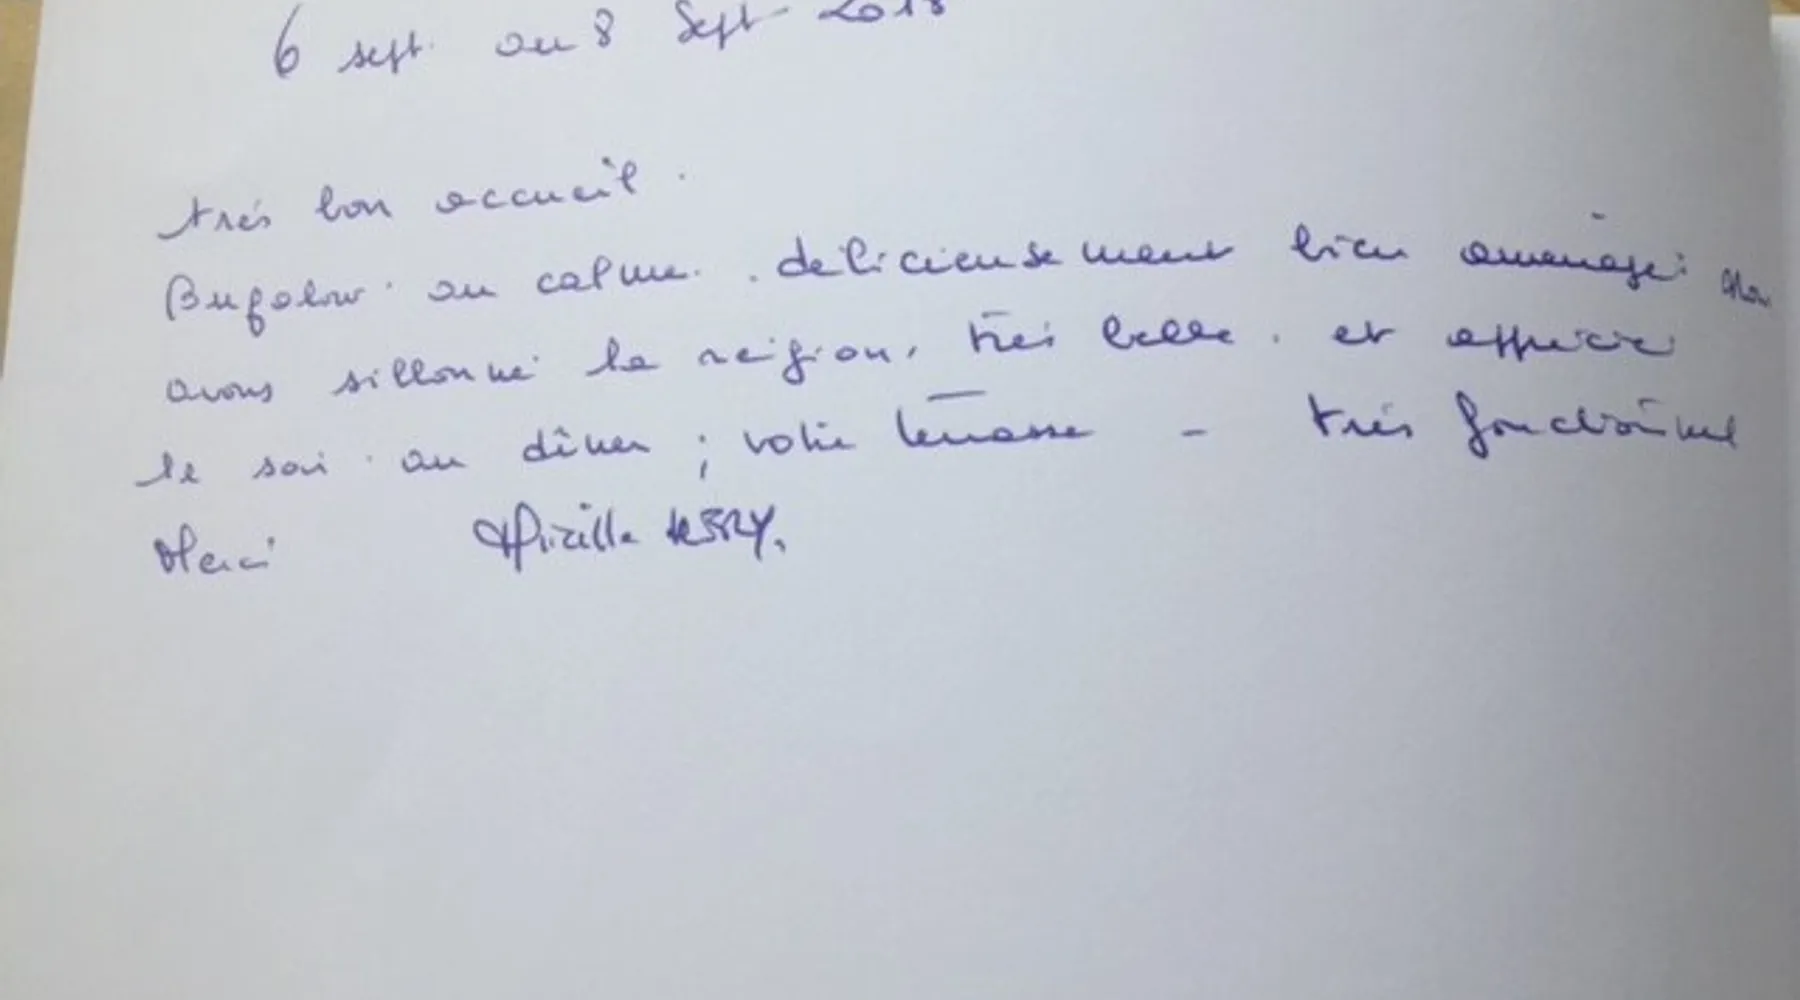 6 sept. au 8 Sept 2018
très bon accueil.
Bugalow au calme. délicieusement bien aménagé. Nous
avons sillonné la région, très belle. et apprécié
le soir au dîner ; votre terrasse - très fonctionnel
Merci Mireille